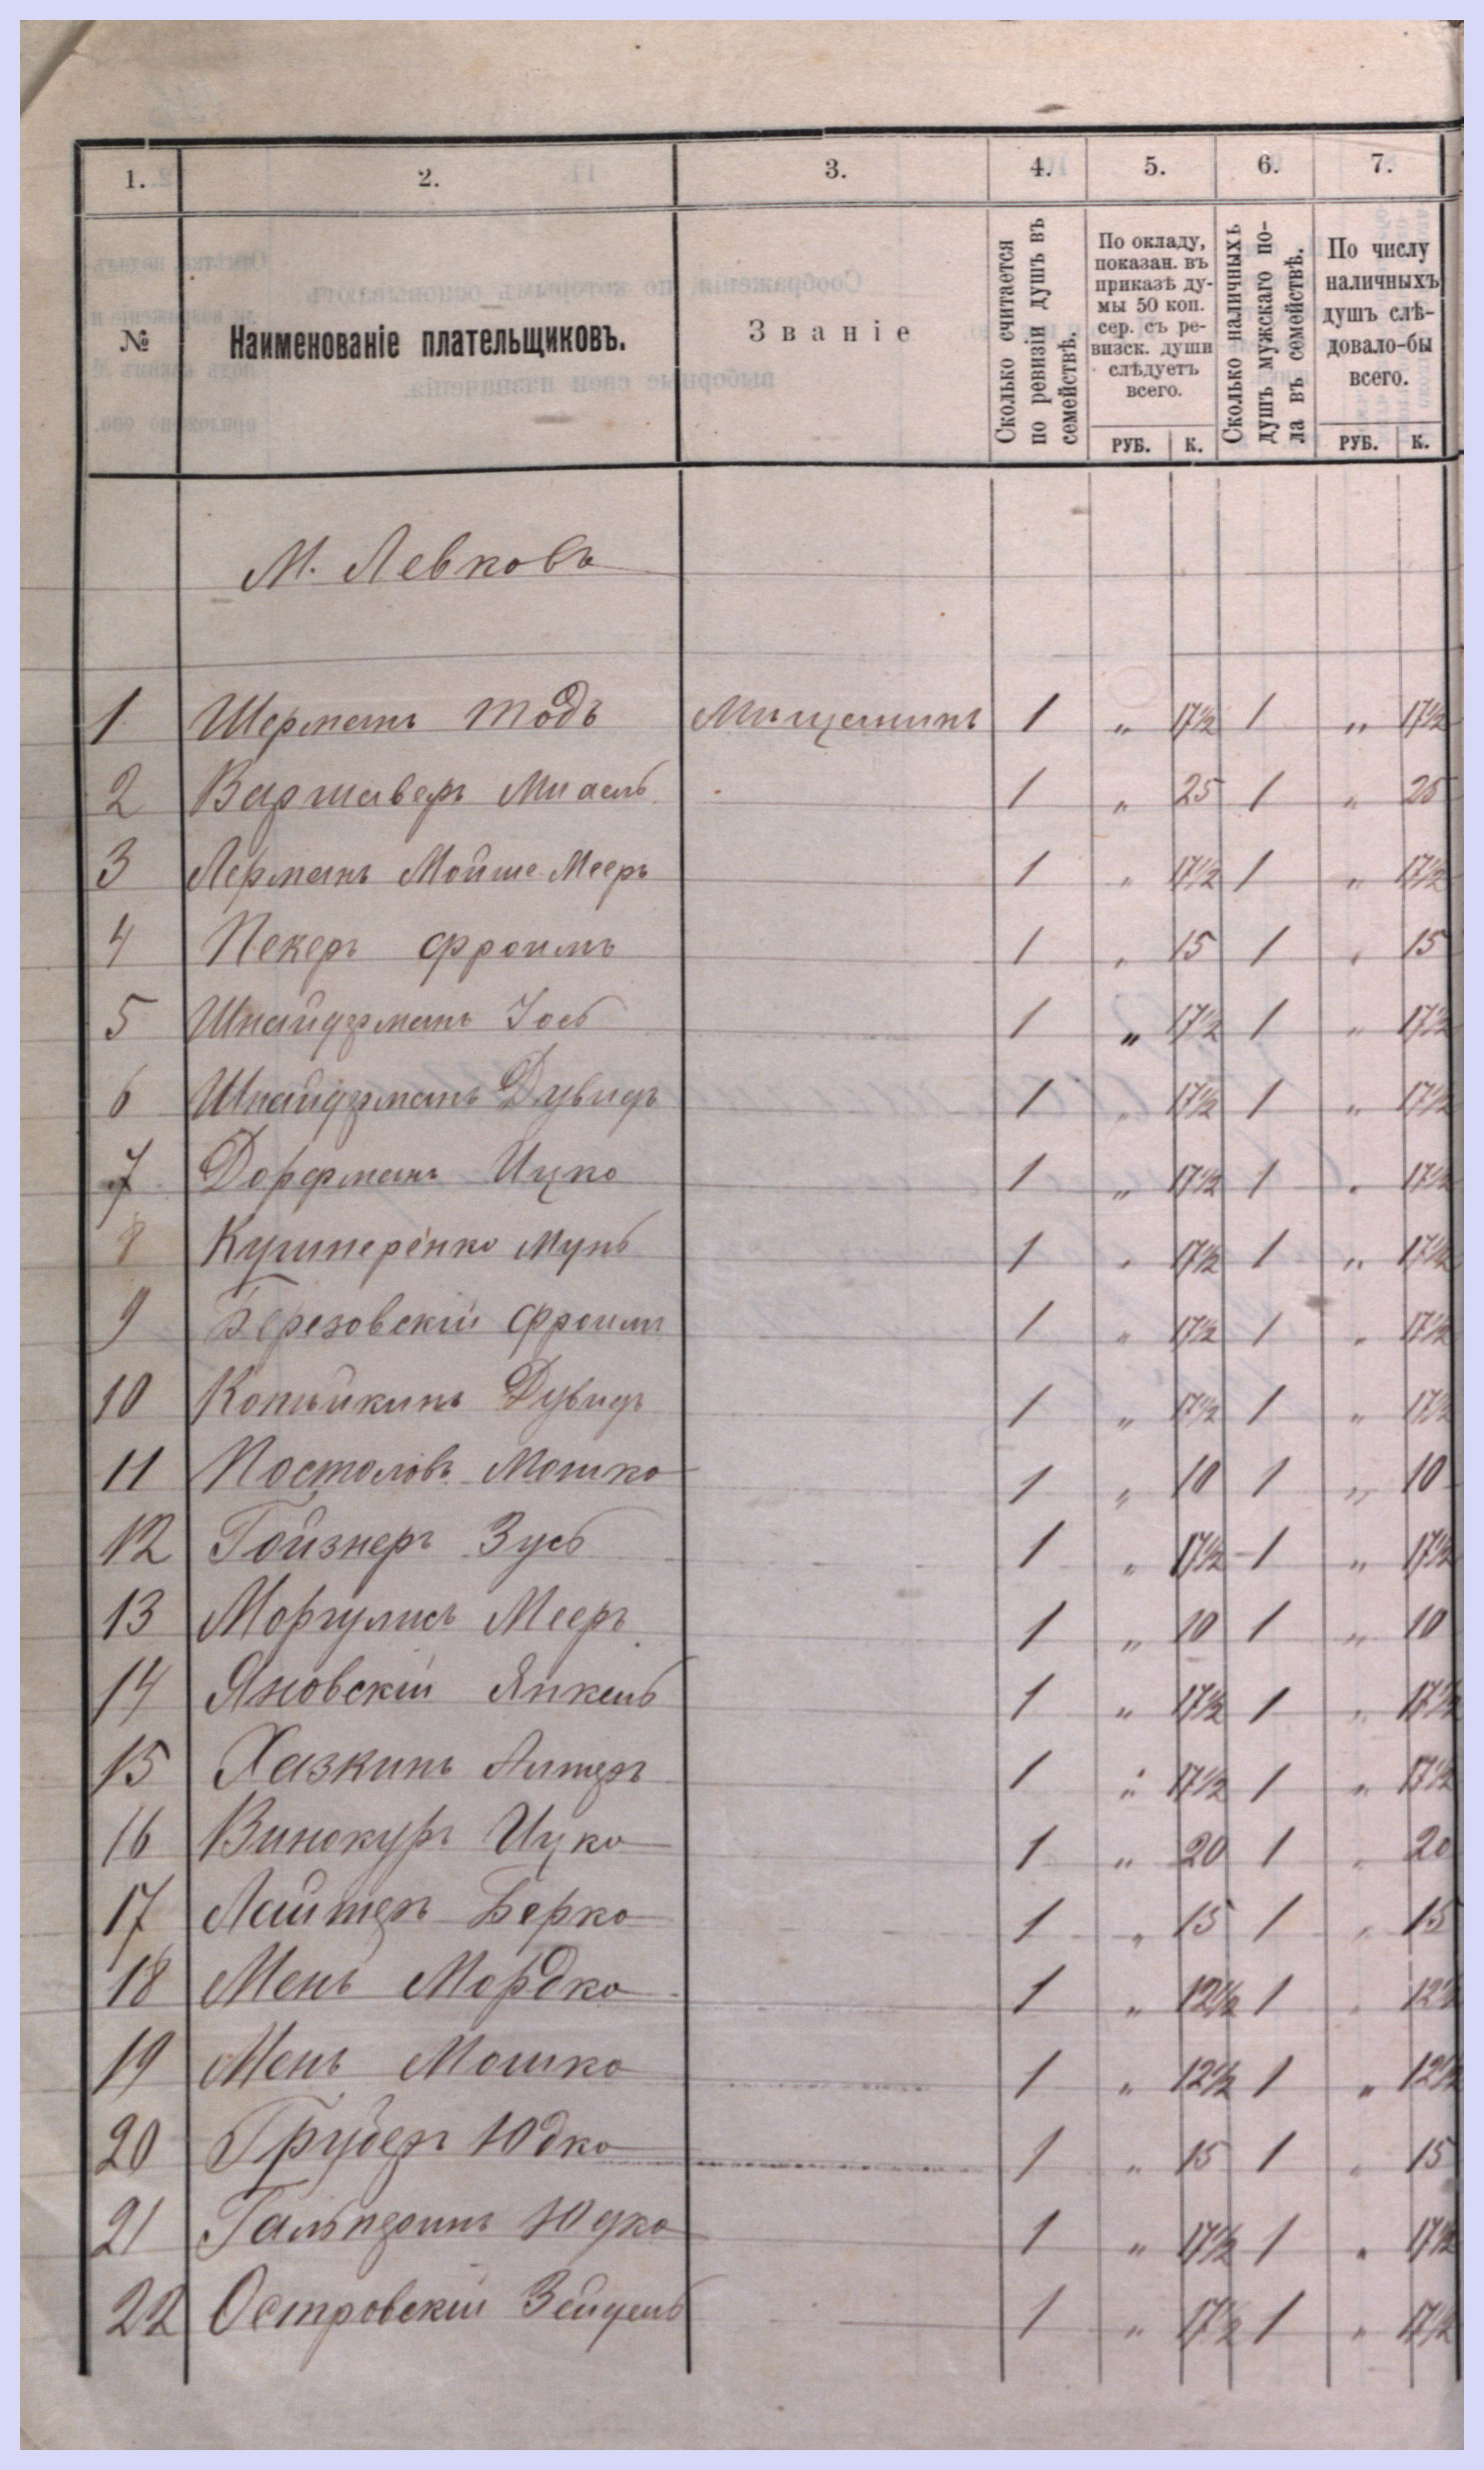 1. 2. 3. 4. 5. 6. 7.
№
Наименованіе плательщиковъ.
Званіе
Сколько считается
по ревизіи душъ въ
семействѣ.
По окладу,
показан. въ
приказѣ ду-
мы 50 коп.
сер. съ ре-
визск. души
слѣдуетъ
всего.
РУБ. К.
Сколько наличныхъ
душъ мужскаго по-
ла въ семействѣ.
По числу
наличныхъ
душъ слѣ-
довало-бы
всего.
РУБ. К.
М. Левковъ
1 Шерманъ Тодъ Мѣщанинъ 1 „ 17½ 1 „ 17½
2 Варшаверъ 1 „ 25 1 „ 25
3 Лерманъ Мойше Мееръ 1 „ 17½ 1 „ 17½
4 Пекеръ Фроимъ 1 „ 15 1 „ 15
5 Шнайдрманъ Іось 1 „ 17½ 1 „ 17½
6 Шнайдрманъ Дувидъ 1 „ 17½ 1 „ 17½
7 Дорфманъ Ицко 1 „ 17½ 1 „ 17½
8 1 „ 17½ 1 „ 17½
9 Березовскій Фроимъ 1 „ 17½ 1 „ 17½
10 Дувидъ 1 „ 17½ 1 „ 17½
11 Постоловъ Мошко 1 „ 10 1 „ 10
12 Гойзнеръ Зусь 1 „ 17½ 1 „ 17½
13 Моргулисъ Мееръ 1 „ 10 1 „ 10
14 Яновскій Янкель 1 „ 17½ 1 „ 17½
15 Хазкинъ Алтеръ 1 „ 17½ 1 „ 17½
16 Винокуръ Ицко 1 „ 20 1 „ 20
17 Лайтеръ Берко 1 „ 15 1 „ 15
18 Мень Мордко 1 „ 12½ 1 „ 12½
19 Мень Мошко 1 „ 12½ 1 „ 12½
20 Груберъ Юдко 1 „ 15 1 „ 15
21 Гальперинъ Юдко 1 „ 17½ 1 „ 17½
22 Островскій Зейдель 1 „ 17½ 1 „ 17½